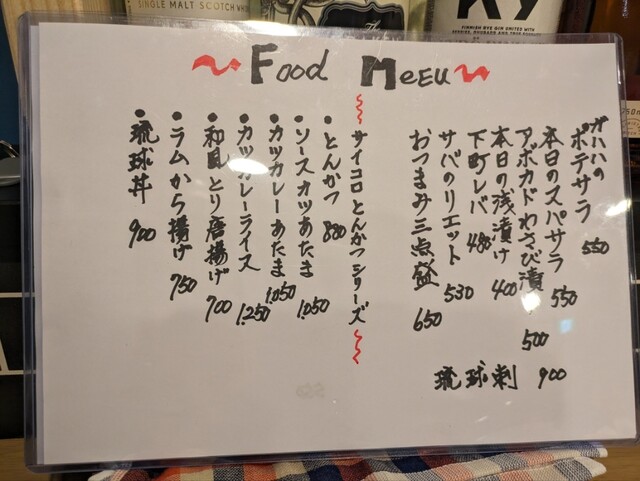 SINGLE MALT SCOTCH WH
FINNISH RYE GIN UNITED WITH
~Food MEEU~
ガハハの
ポテサラ 550
本日のスパサラ 550
アボカドわさび漬 500
本日の浅漬け 400
下町レバ 480
サバのリエット 530
おつまみ三点盛 650
琉球刺 900
サイコロとんかつシリーズ
•とんかつ 880
•ソースカツあたま 1,050
•カツカレーあたま 1,050
•カツカレーライス 1,250
•和風とり唐揚げ 700
•ラムから揚げ 750
•琉球丼 900